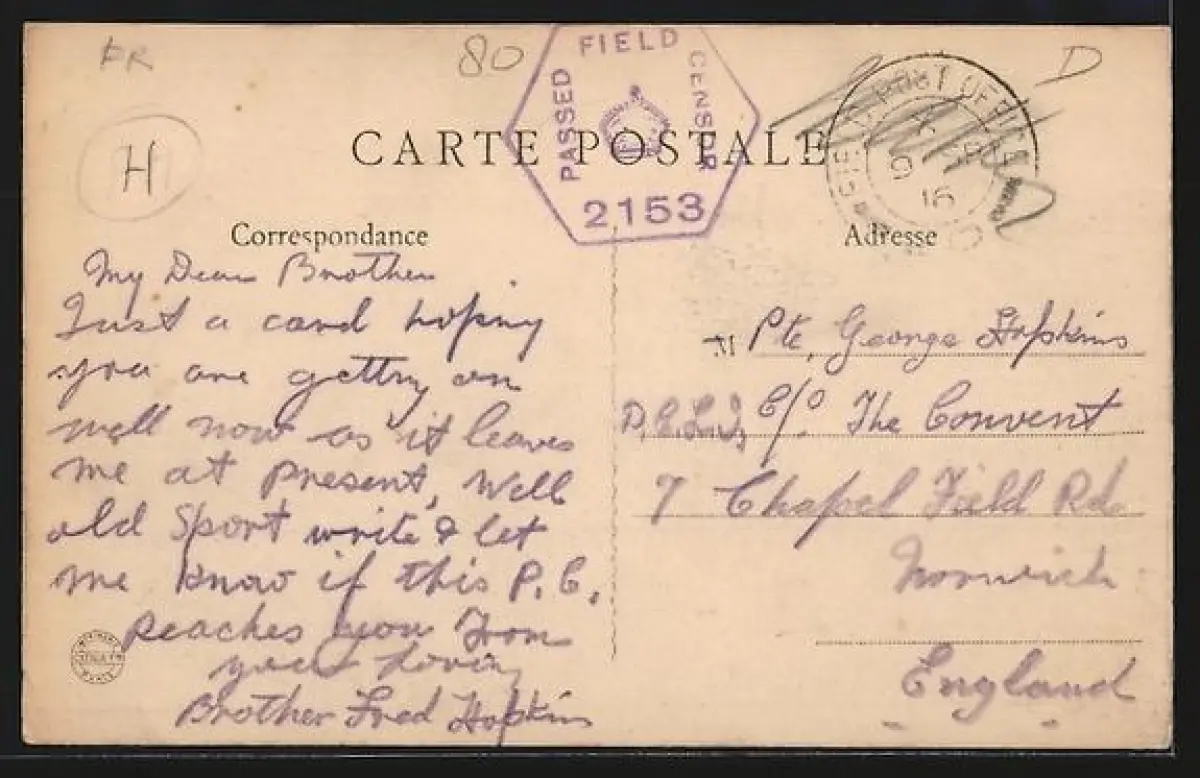 FR
80
D
H
PASSED FIELD CENSOR
2153
FIELD POST OFFICE
16
CARTE POSTALE
Correspondance
Adresse
My Dear Brother
Just a card hoping
you are getting on
well now as it leaves
me at present, Well
old Sport write & let
me know if this P.C.
reaches you From
your loving
Brother Fred Hopkins
M Pte, George Hopkins
D.C.L.I, C/o The Convent
7 Chapel Field Rd.
Norwich
England